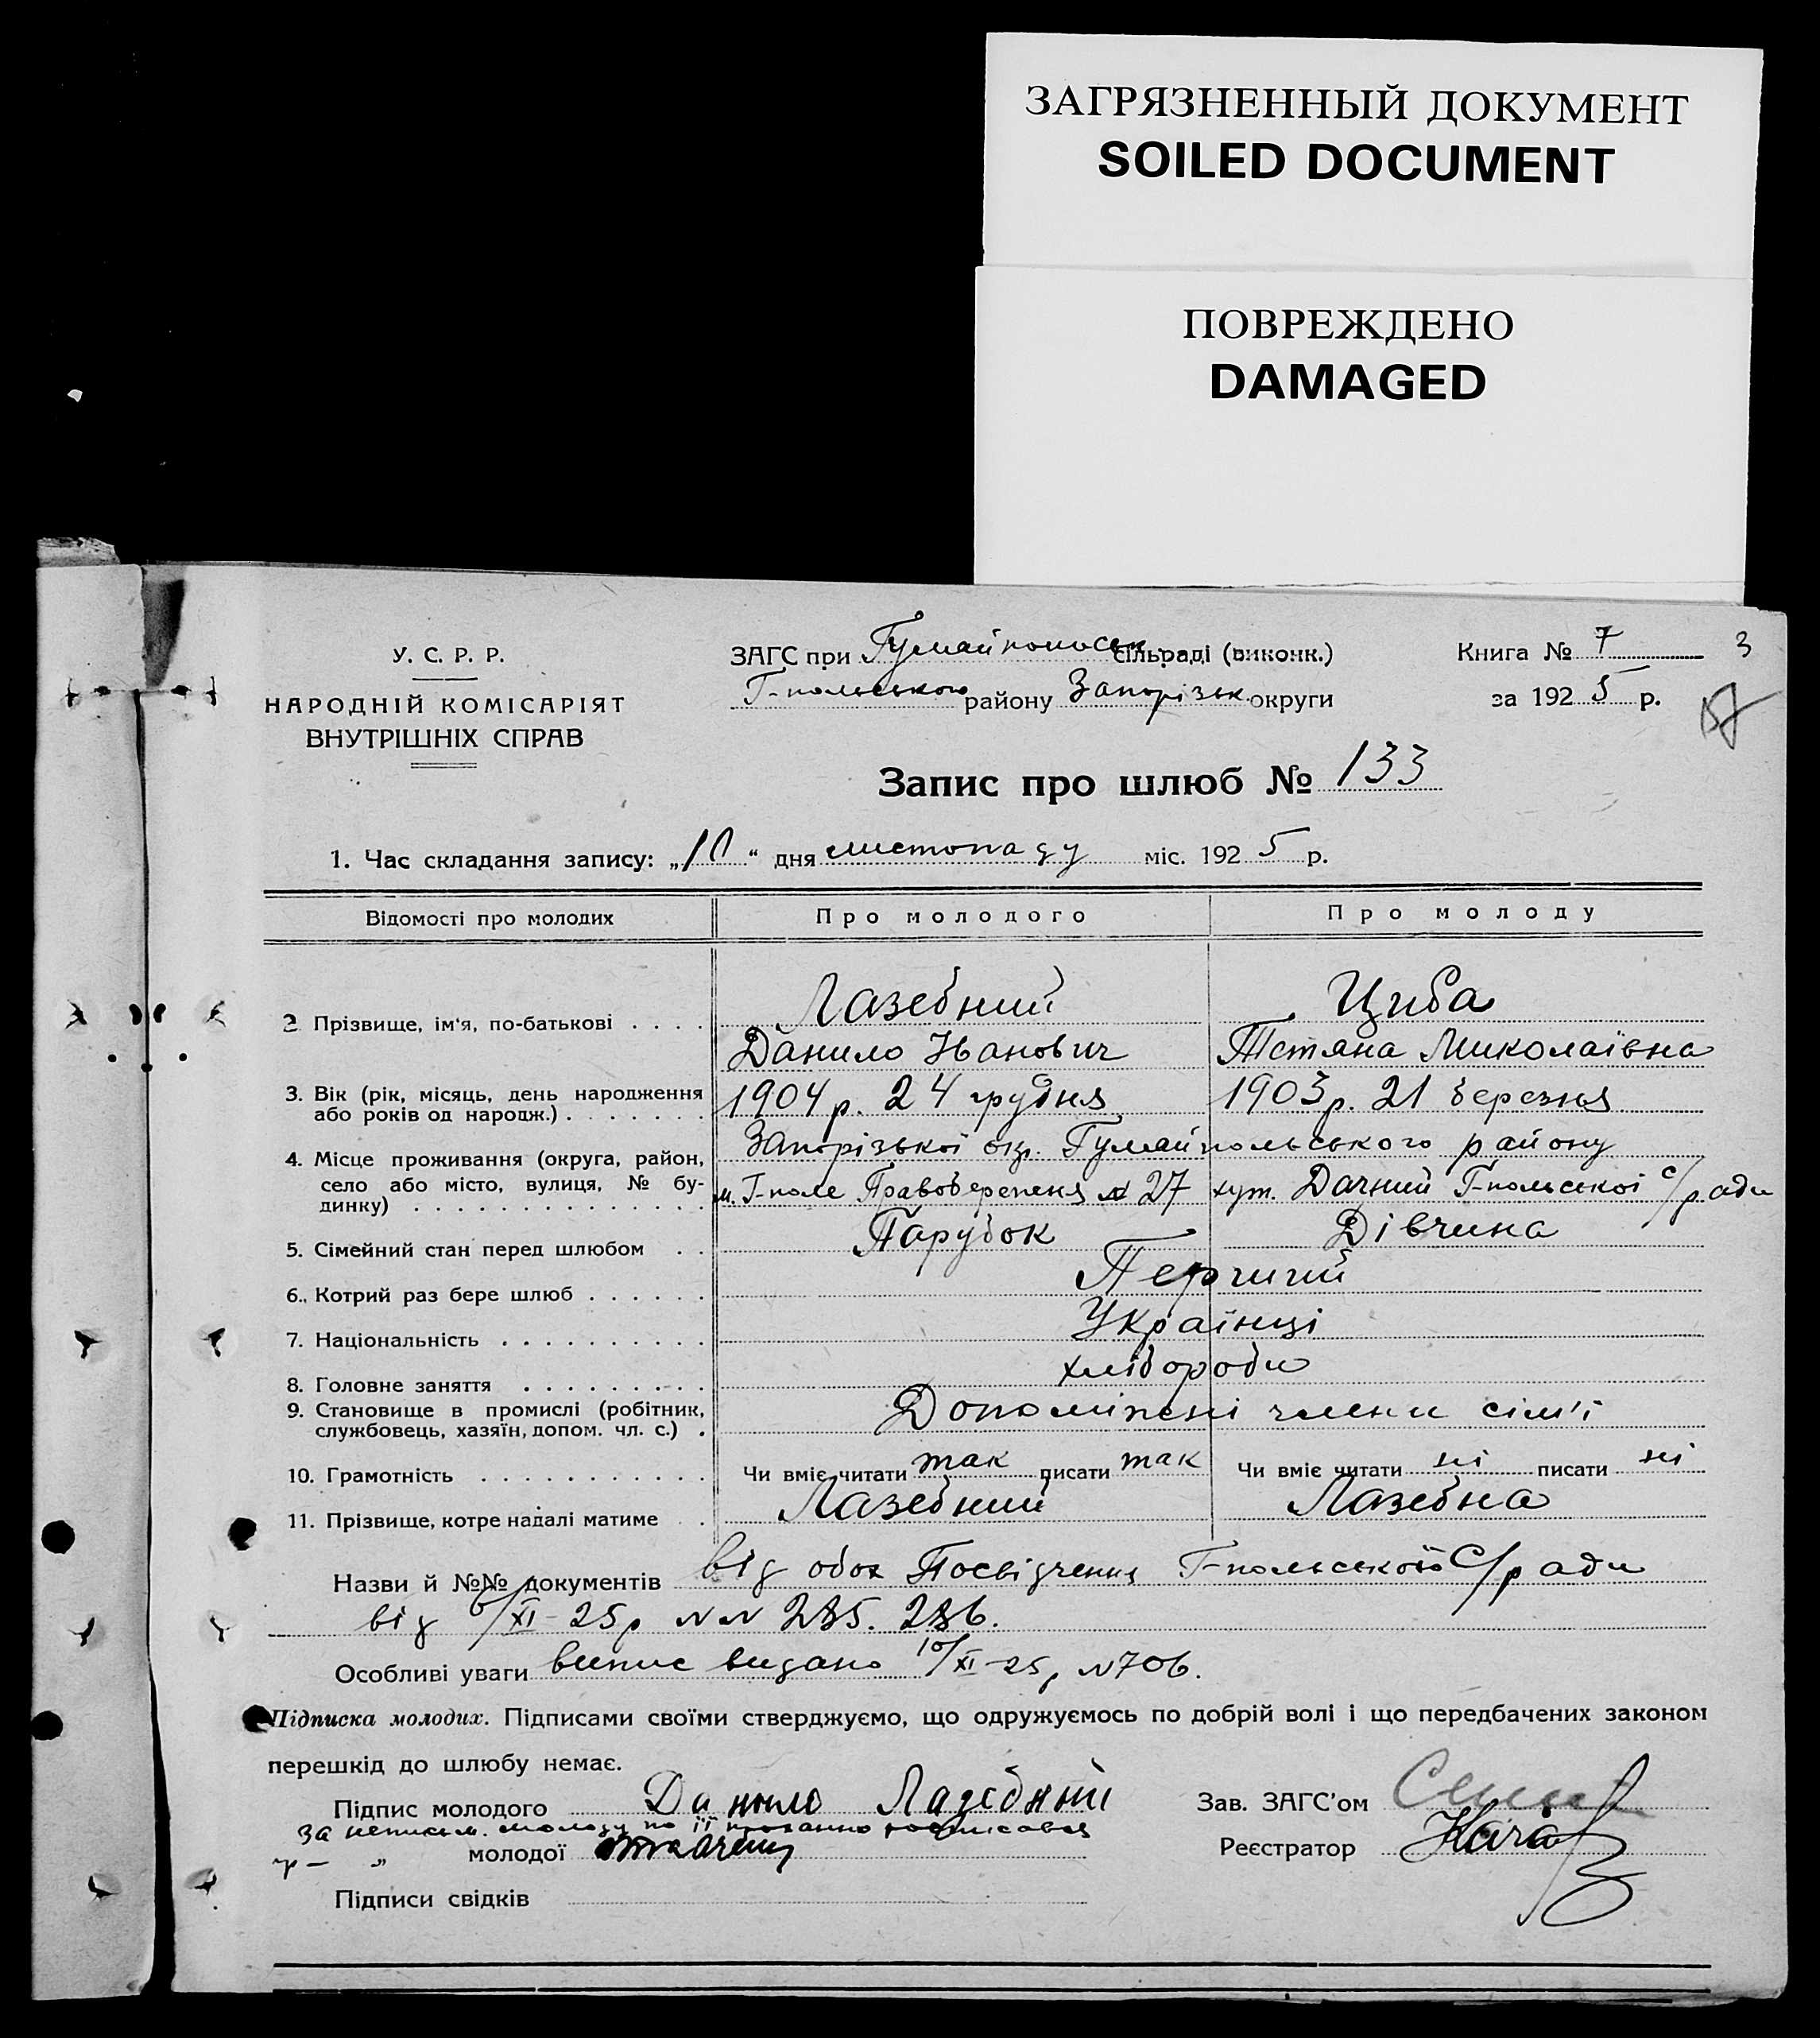 ЗАГРЯЗНЕННЫЙ ДОКУМЕНТ
SOILED DOCUMENT
ПОВРЕЖДЕНО
DAMAGED
У. С. Р. Р.
НАРОДНІЙ КОМІСАРІЯТ
ВНУТРІШНІХ СПРАВ
ЗАГС при Гуляйпольськ сільраді (виконк.)
Г-польського району Запорізьк округи
Книга № 7 3
за 1925 р.
Запис про шлюб № 133
1. Час складання запису: „10“ дня листопаду міс. 1925 р.
Відомості про молодих Про молодого Про молоду
2 Прізвище, ім'я, по-батькові . . . . Лазебний Циба
Данило Іванович Тетяна Миколаївна
3. Вік (рік, місяць, день народження
або років од народж.) . . . . . . . 1904 р. 24 грудня 1903 р. 21 березня
4. Місце проживання (округа, район, Запорізької окр. Гуляйпольського району
село або місто, вулиця, № бу-
динку) . . . . . . . . . . . . . . м. Г-поле Правобережня № 27 хут. Дачний Г-польської с/ради
5. Сімейний стан перед шлюбом . . Парубок Дівчина
6. Котрий раз бере шлюб . . . . . . Перший
7. Національність . . . . . . . . . . Українці
8. Головне заняття . . . . . . . . . хлібороби
9. Становище в промислі (робітник,
службовець, хазяїн, допом. чл. с.) . Допоміжні члени сім'ї
10. Грамотність . . . . . . . . . . . Чи вміє читати так писати так Чи вміє читати ні писати ні
11. Прізвище, котре надалі матиме . . Лазебний Лазебна
Назви й №№ документів від обох Посвідчення Г-польської С/ради
від 6/XI-25р №№ 285. 286.
Особливі уваги випис видано 10/XI-25р №706.
Підписка молодих. Підписами своїми стверджуємо, що одружуємось по добрій волі і що передбачених законом
перешкід до шлюбу немає.
Підпис молодого Данило Лазебний
Зав. ЗАГС'ом
за неписьм. молоду по її проханню росписався
гр— „ молодої
Реєстратор
Підписи свідків